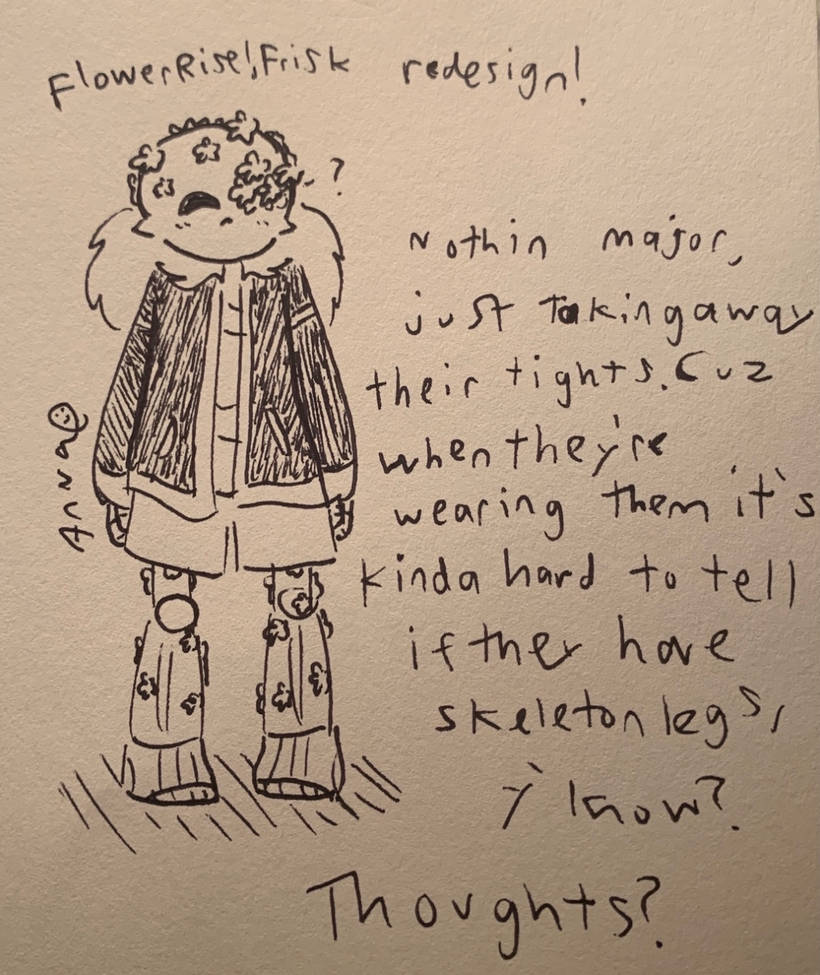 FlowerRise!Frisk redesign!
?
Nothin major,
just Taking away
their tights. Cuz
when they're
wearing them it's
kinda hard to tell
if they have
skeleton legs,
y'know?
Thoughts?
Anna